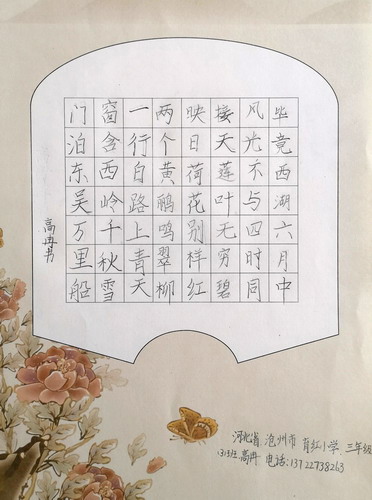 毕竟西湖六月中
风光不与四时同
接天莲叶无穷碧
映日荷花别样红
两个黄鹂鸣翠柳
一行白路上青天
窗含西岭千秋雪
门泊东吴万里船
高冉书
河北省 沧州市 育红小学 三年级
高冉 电话:13722738263